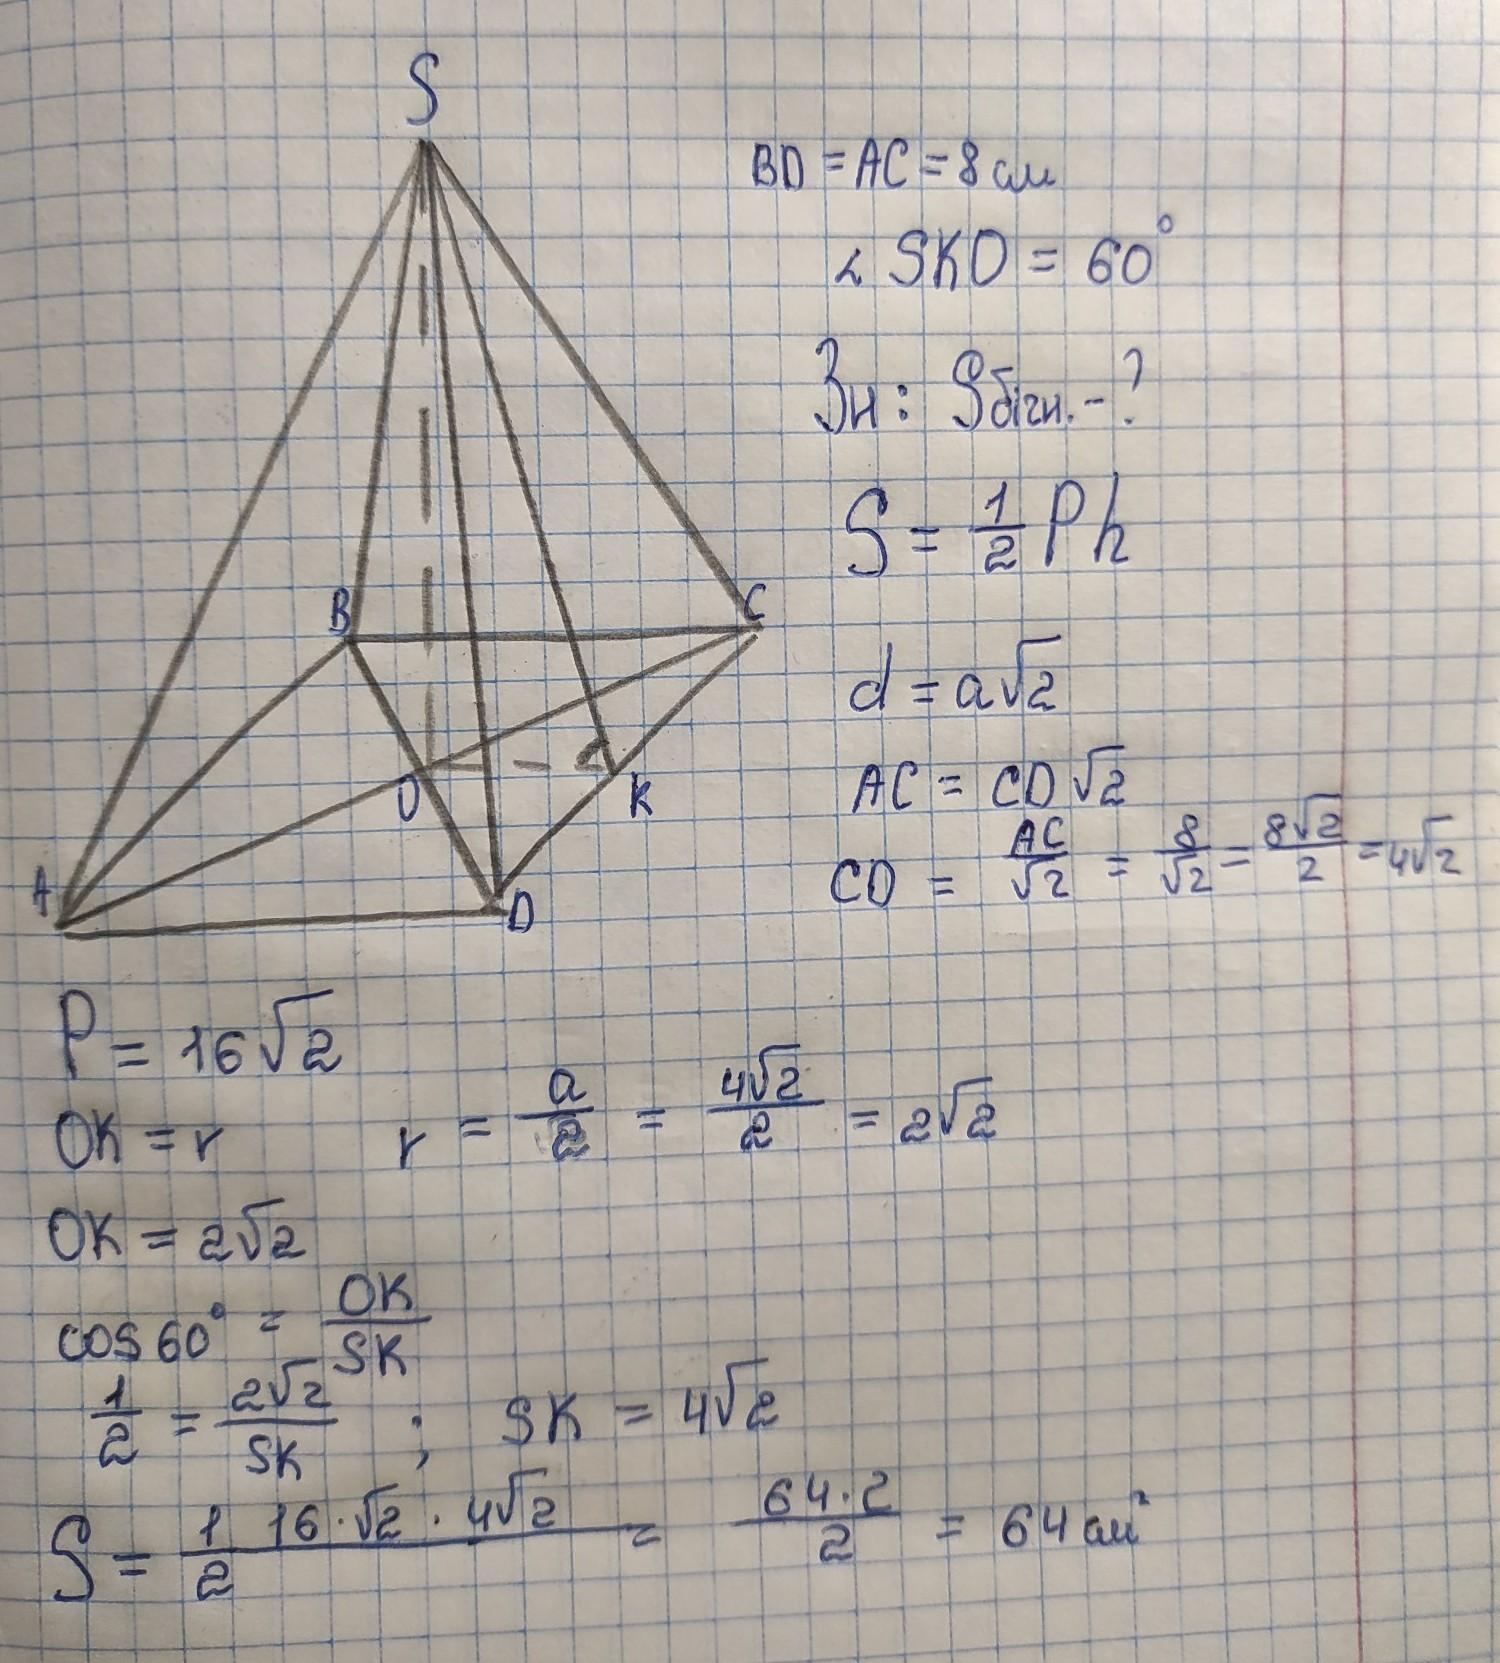 S
BD = AC = 8 см
∠ SKO = 60°
Зн: Sбічн. - ?
S = 1/2 P h
B
C
d = a√2
O
K
AC = CD √2
CD = AC/√2 = 8/√2 = 8√2/2 = 4√2
A
D
P = 16√2
OK = r r = a/2 = 4√2/2 = 2√2
OK = 2√2
cos 60° = OK/SK
1/2 = 2√2/SK ; SK = 4√2
S = 1 16 · √2 · 4√2/2 = 64 · 2/2 = 64 см²